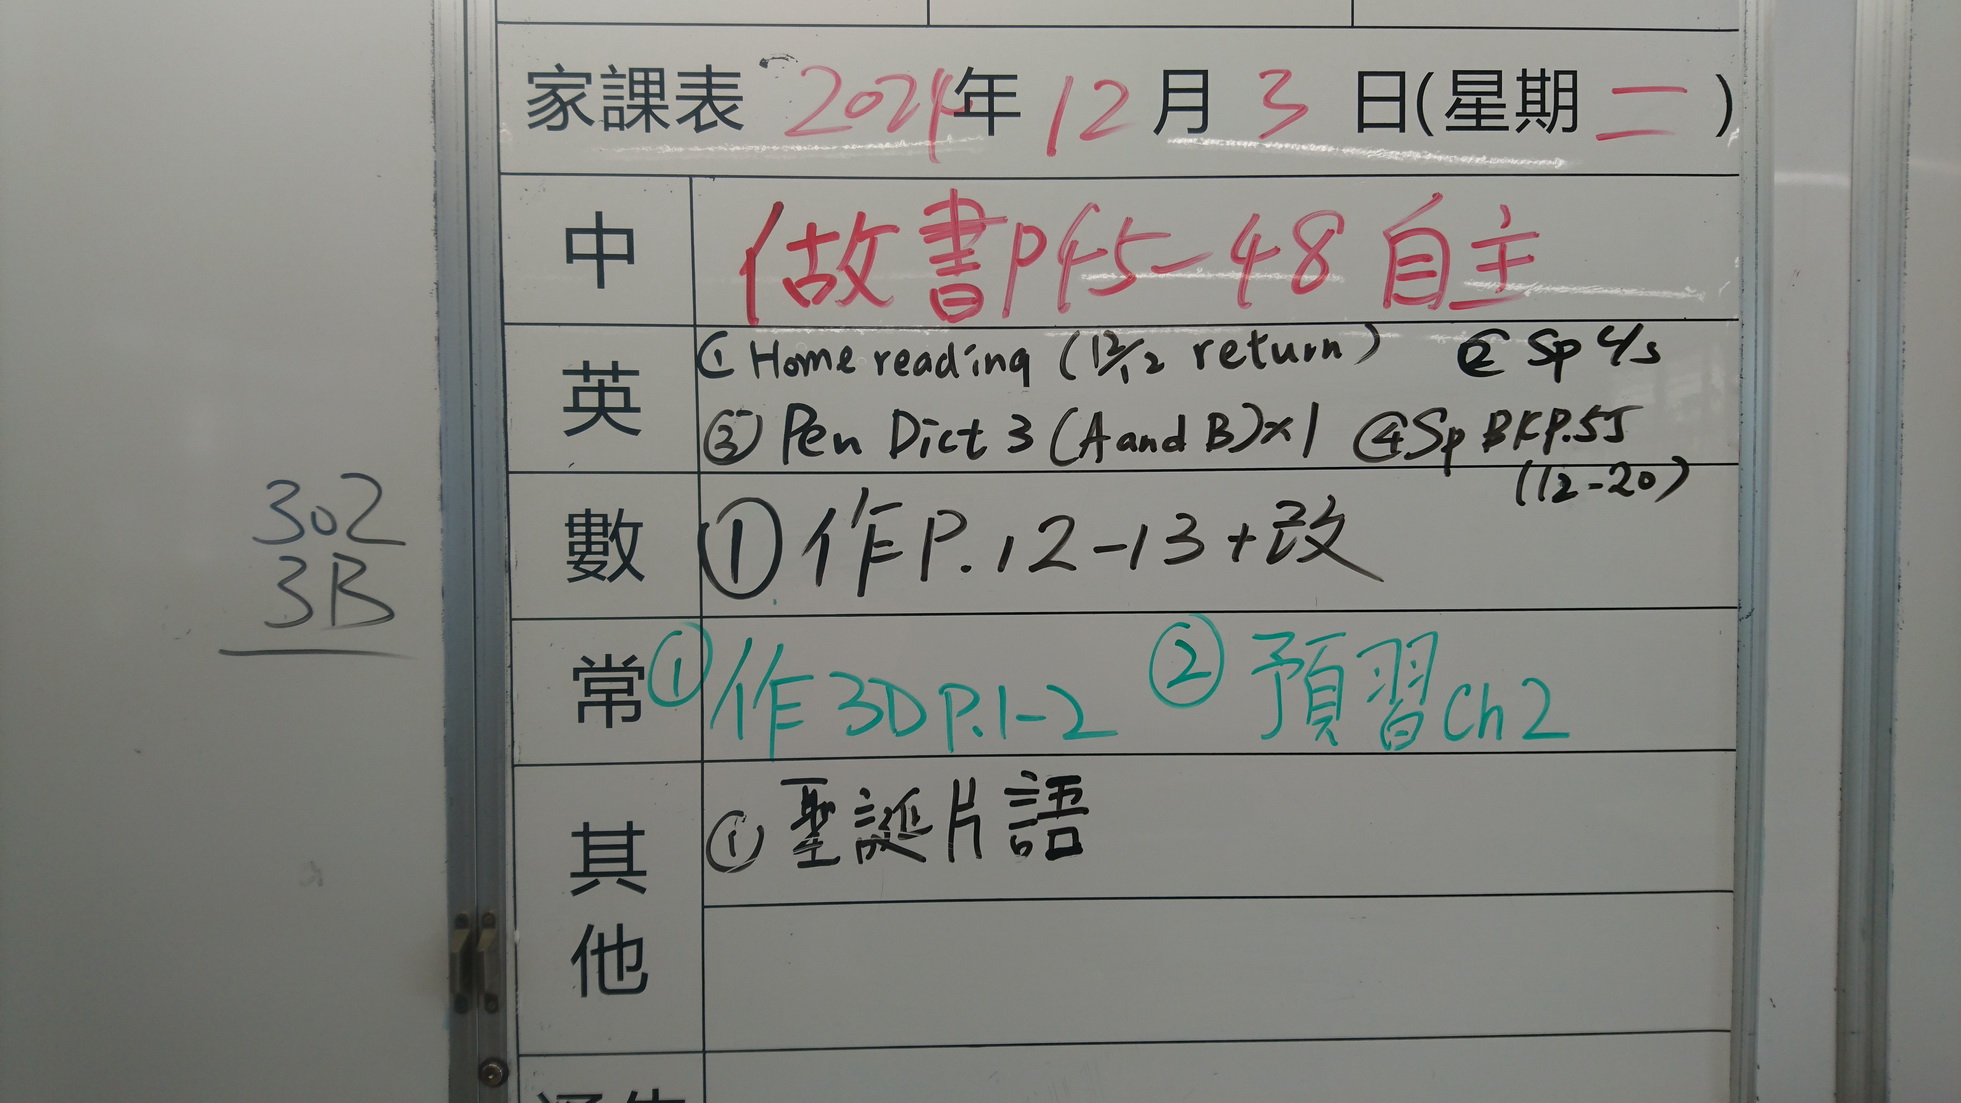 家課表 2024年 12月 3日(星期二)
中 做書P45-48 自主
英 ① Home reading (12/12 return) ② Sp 4/s
③ Pen Dict 3 (A and B)x1 ④ Sp BK P.55
(12-20)
數 ① 作P.12-13+改
302
3B
常 ① 作3D P.1-2 ② 預習Ch2
其他 ① 聖誕片語